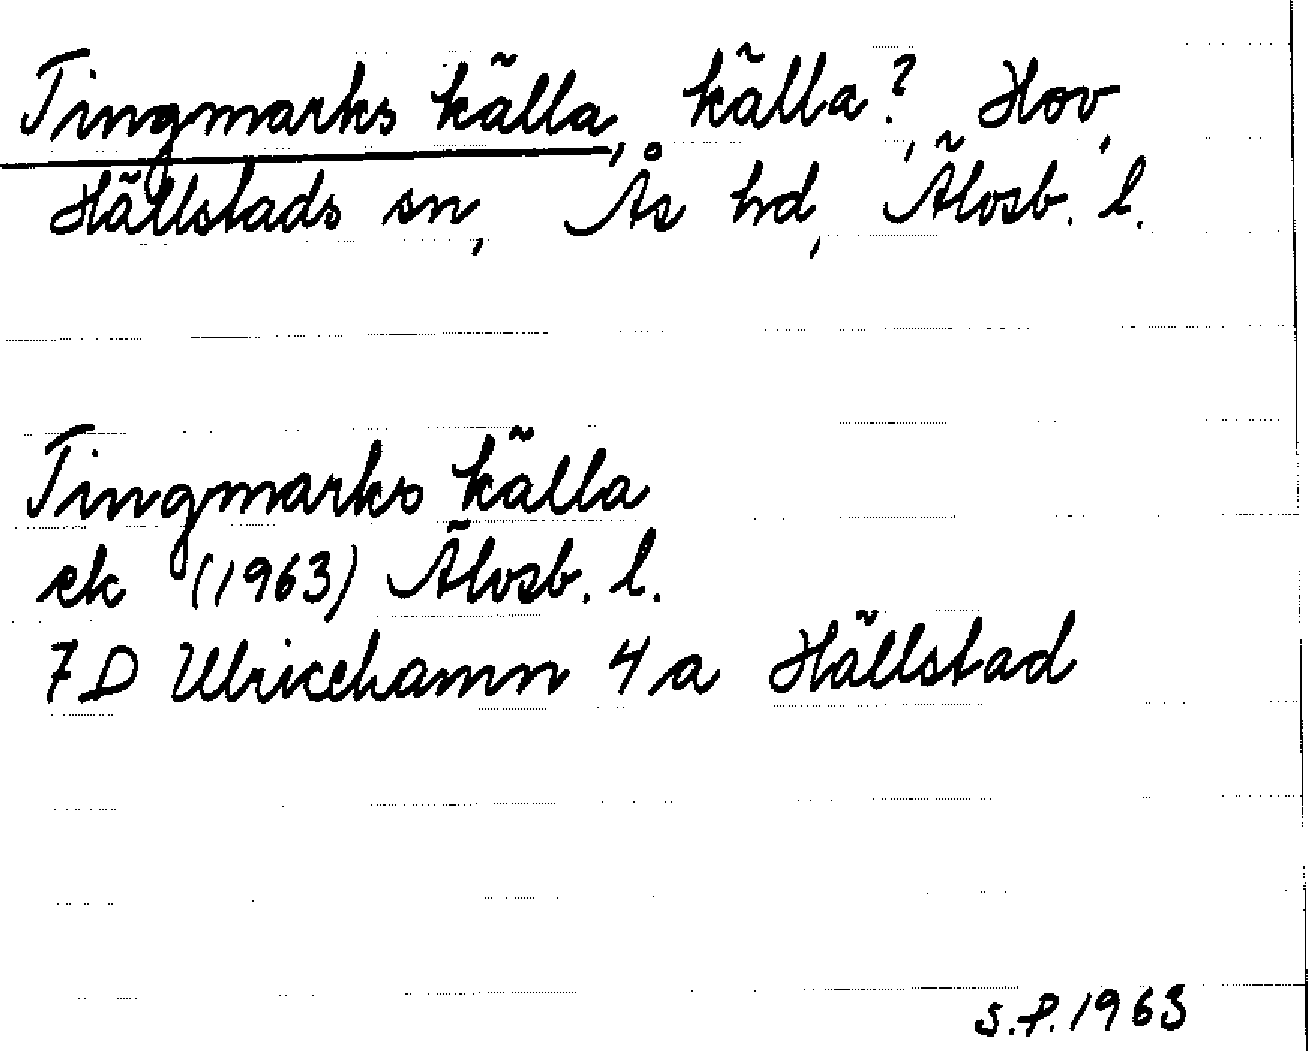 Tingmarks källa, källa?, Hov,
Hällstads sn, Ås hd, Älvsb. l.
Tingmarks källa
ek (1963) Älvsb. l.
7D Ulricehamn 4a Hällstad
S.P. 1963